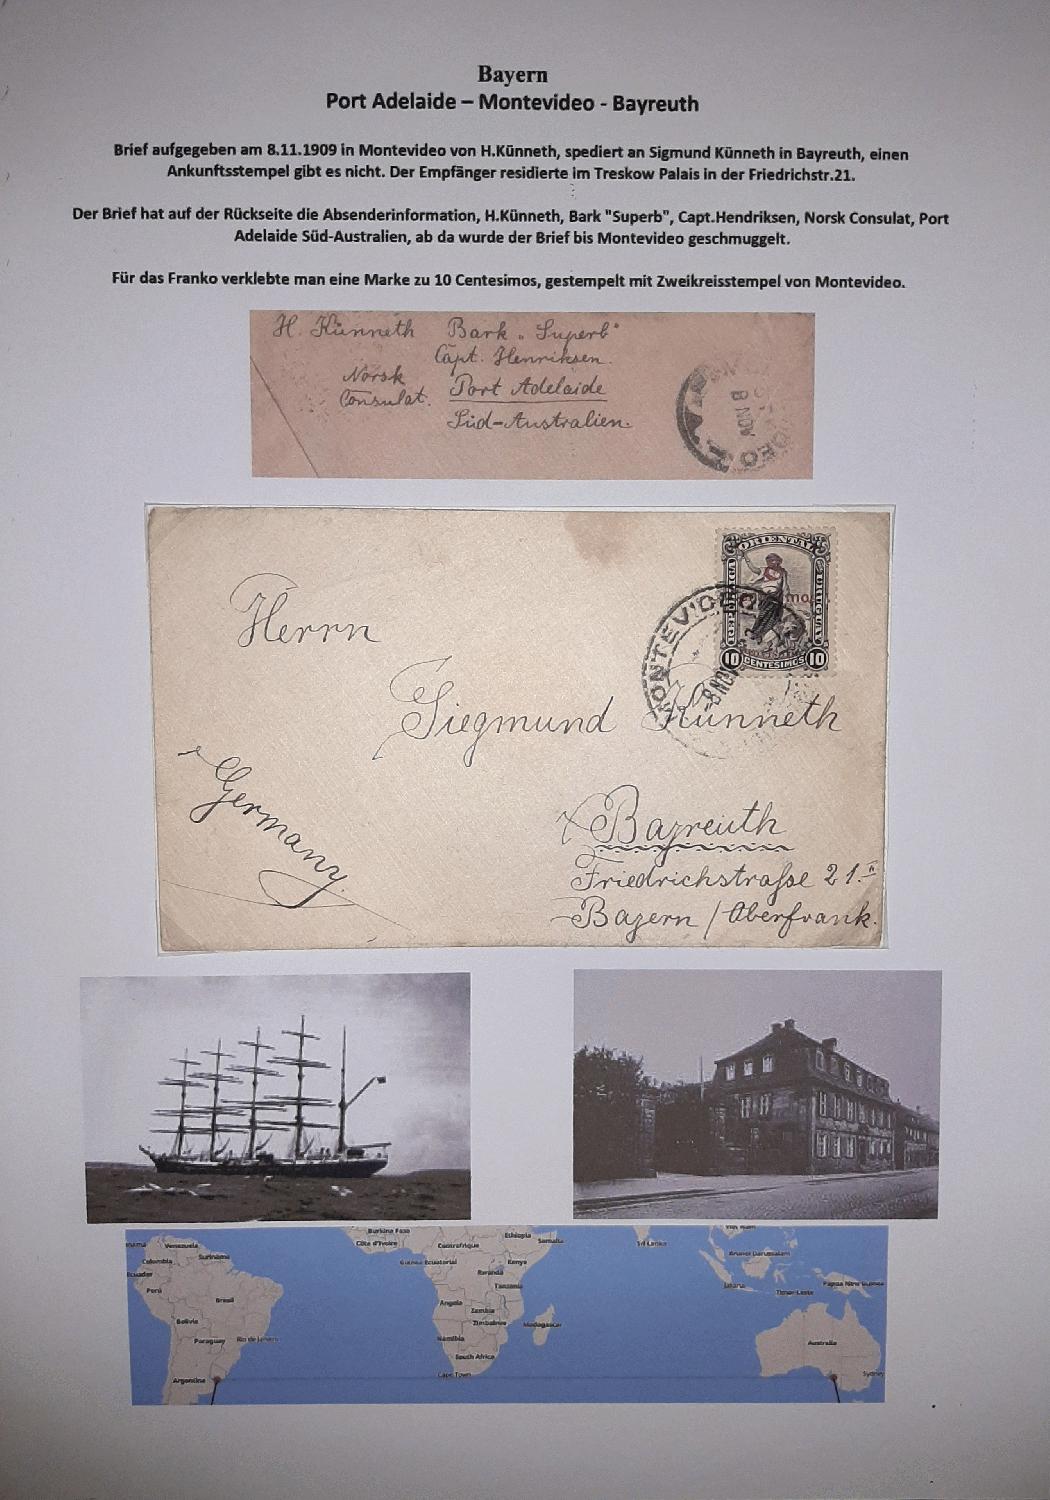 Bayern
Port Adelaide – Montevideo - Bayreuth
Brief aufgegeben am 8.11.1909 in Montevideo von H.Künneth, spediert an Sigmund Künneth in Bayreuth, einen
Ankunftsstempel gibt es nicht. Der Empfänger residierte im Treskow Palais in der Friedrichstr.21.
Der Brief hat auf der Rückseite die Absenderinformation, H.Künneth, Bark "Superb", Capt.Hendriksen, Norsk Consulat, Port
Adelaide Süd-Australien, ab da wurde der Brief bis Montevideo geschmuggelt.
Für das Franko verklebte man eine Marke zu 10 Centesimos, gestempelt mit Zweikreisstempel von Montevideo.
H. Künneth Bark „Superb"
Capt. Henriksen.
Norsk Port Adelaide
Consulat.
Süd-Australien.
8 NOV
ORIENTAL
REPUBLICA URUGUAY
10 CENTESIMOS 10
MONTEVIDEO
-8 NOV
Herrn
Siegmund Künneth
Germany.
Bayreuth
Friedrichstraſse 21.II
Bayern / Oberfrank.
Burkina Faso
Venezuela
Côte d'Ivoire
Centrafrique
Ethiopia
Somalia
Sri Lanka
Suriname
Colombia
Guinea Ecuatorial
Kenya
Brunei Darussalam
Ecuador
Rwanda
Jakarta
Papua Niu Guinea
Perú
Tanzania
Timor-Leste
Brasil
Angola
Zambia
Bolivia
Zimbabwe
Madagascar
Paraguay
Rio de Janeiro
Namibia
Australia
South Africa
Argentina
Cape Town
Sydney